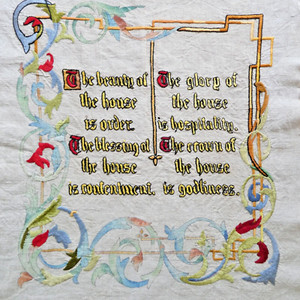 The beauty of
the house
is order.
The blessing of
the house
is contentment.
The glory of
the house
is hospitality.
The crown of
the house
is godliness.